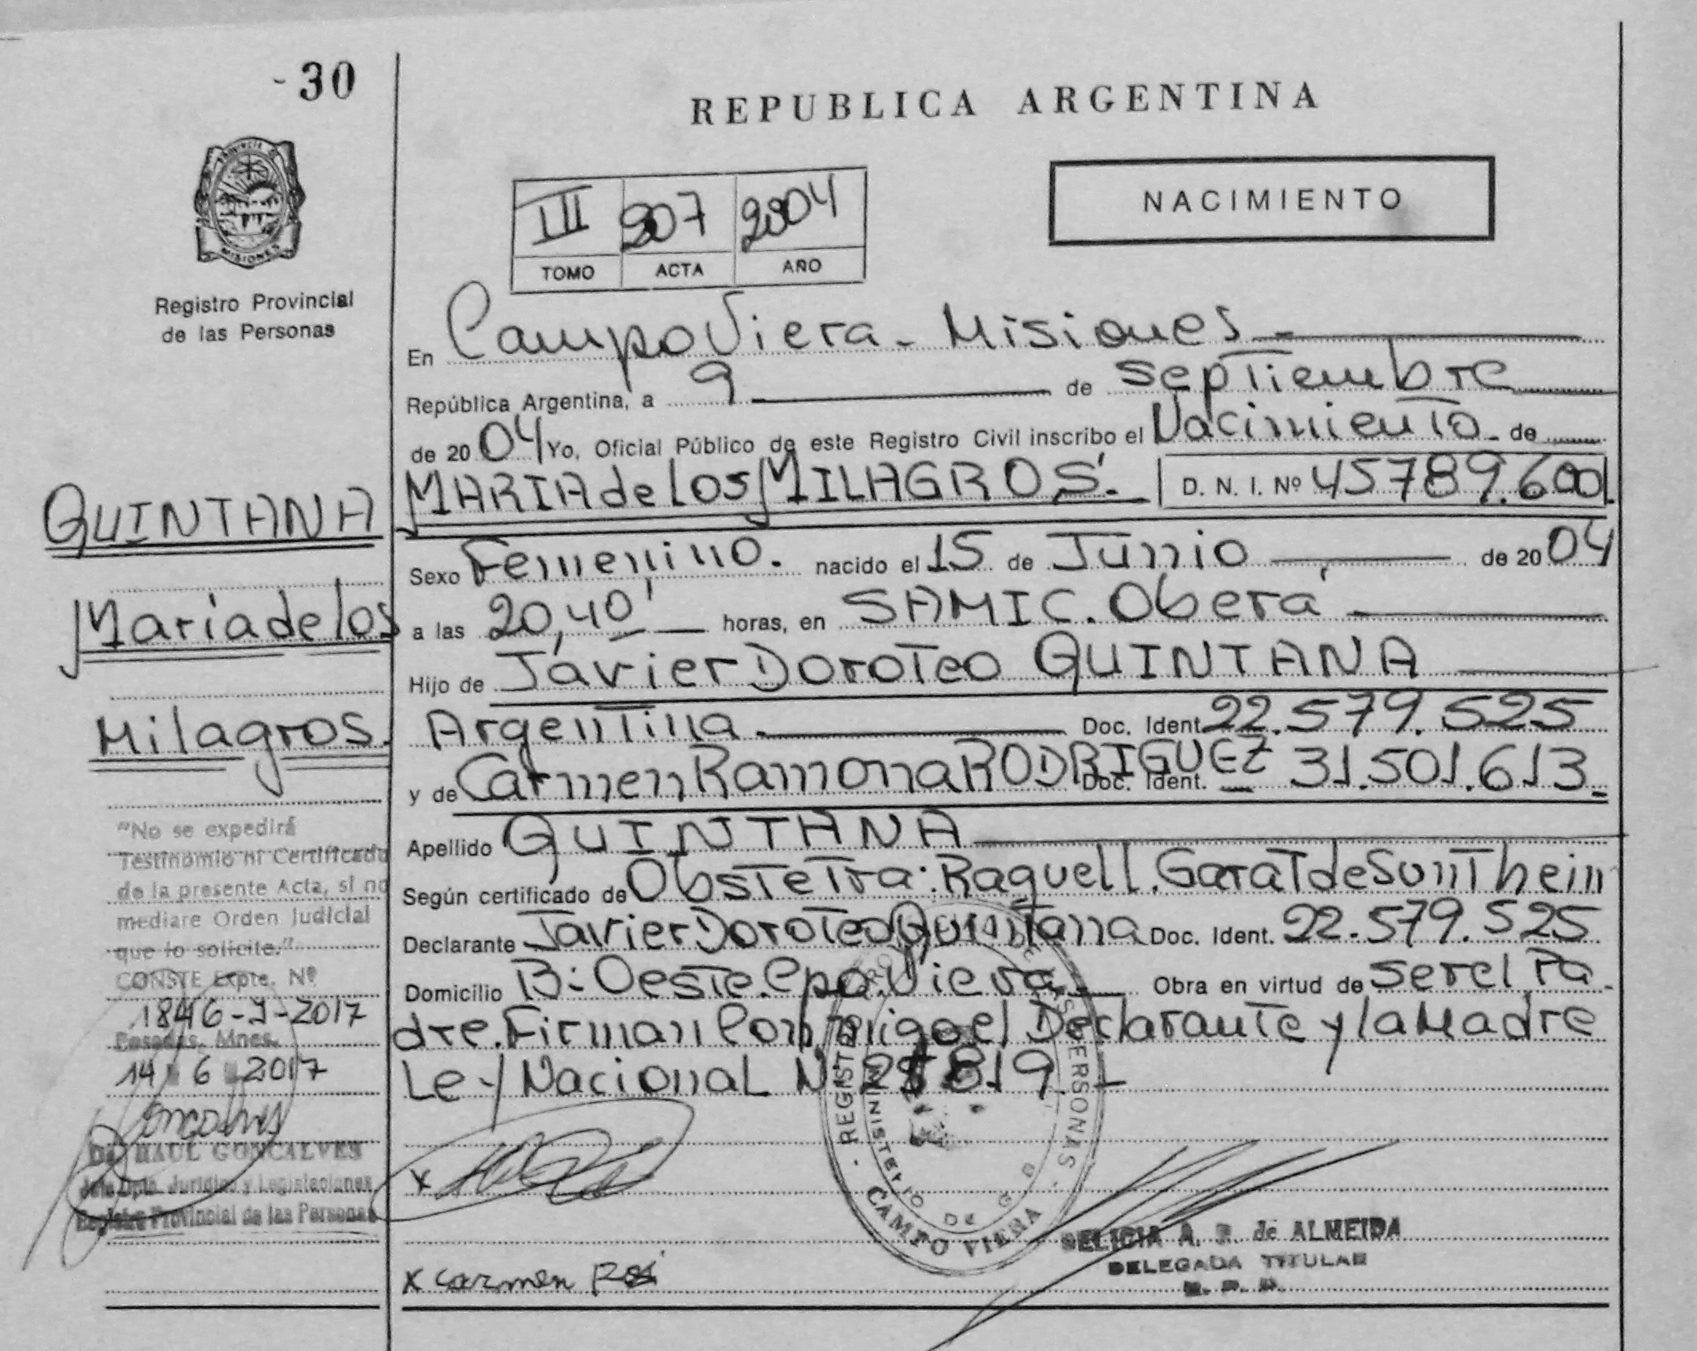 -30
REPUBLICA ARGENTINA
PROVINCIA DE
MISIONES
Registro Provincial
de las Personas
III 207 2004
TOMO ACTA AÑO
NACIMIENTO
En Campo Viera - Misiones
República Argentina, a 9 de septiembre
de 2004 Yo, Oficial Público de este Registro Civil inscribo el Nacimiento de
MARIA de los MILAGROS. D. N. I. Nº 45789.600
Sexo Femenino. nacido el 15 de Junio de 2004
a las 20,40' horas, en SAMIC. Oberá
Hijo de Javier Doroteo QUINTANA
Argentina Doc. Ident. 22.579.525
y de Carmen Ramona RODRIGUEZ Doc. Ident. 31.501.613.
Apellido QUINTANA
Según certificado de Obstetra: Raquel L. Garat de Sontheim
Declarante Javier Doroteo Quintana Doc. Ident. 22.579.525
Domicilio B: Oeste. Cpo. Viera Obra en virtud de ser el Pa-
dre. Firman Conmigo el Declarante y la Madre
Ley Nacional Nº 819.
QUINTANA
Maria de los
Milagros.
"No se expedirá
Testimonio ni Certificado
de la presente Acta, si no
mediare Orden Judicial
que lo solicite."
CONSTE Expte. Nº
1846-J-2017
Posadas, Mnes.
14 6 2017
Dr. RAUL GONCALVES
Jefe Dpto. Jurídico y Legislaciones
Registro Provincial de las Personas
x
x Carmen
REGIST PERSONAS
MINISTERIO DE G
CAMPO VIERA
A. de ALMEIDA
DELEGADA TITULAR